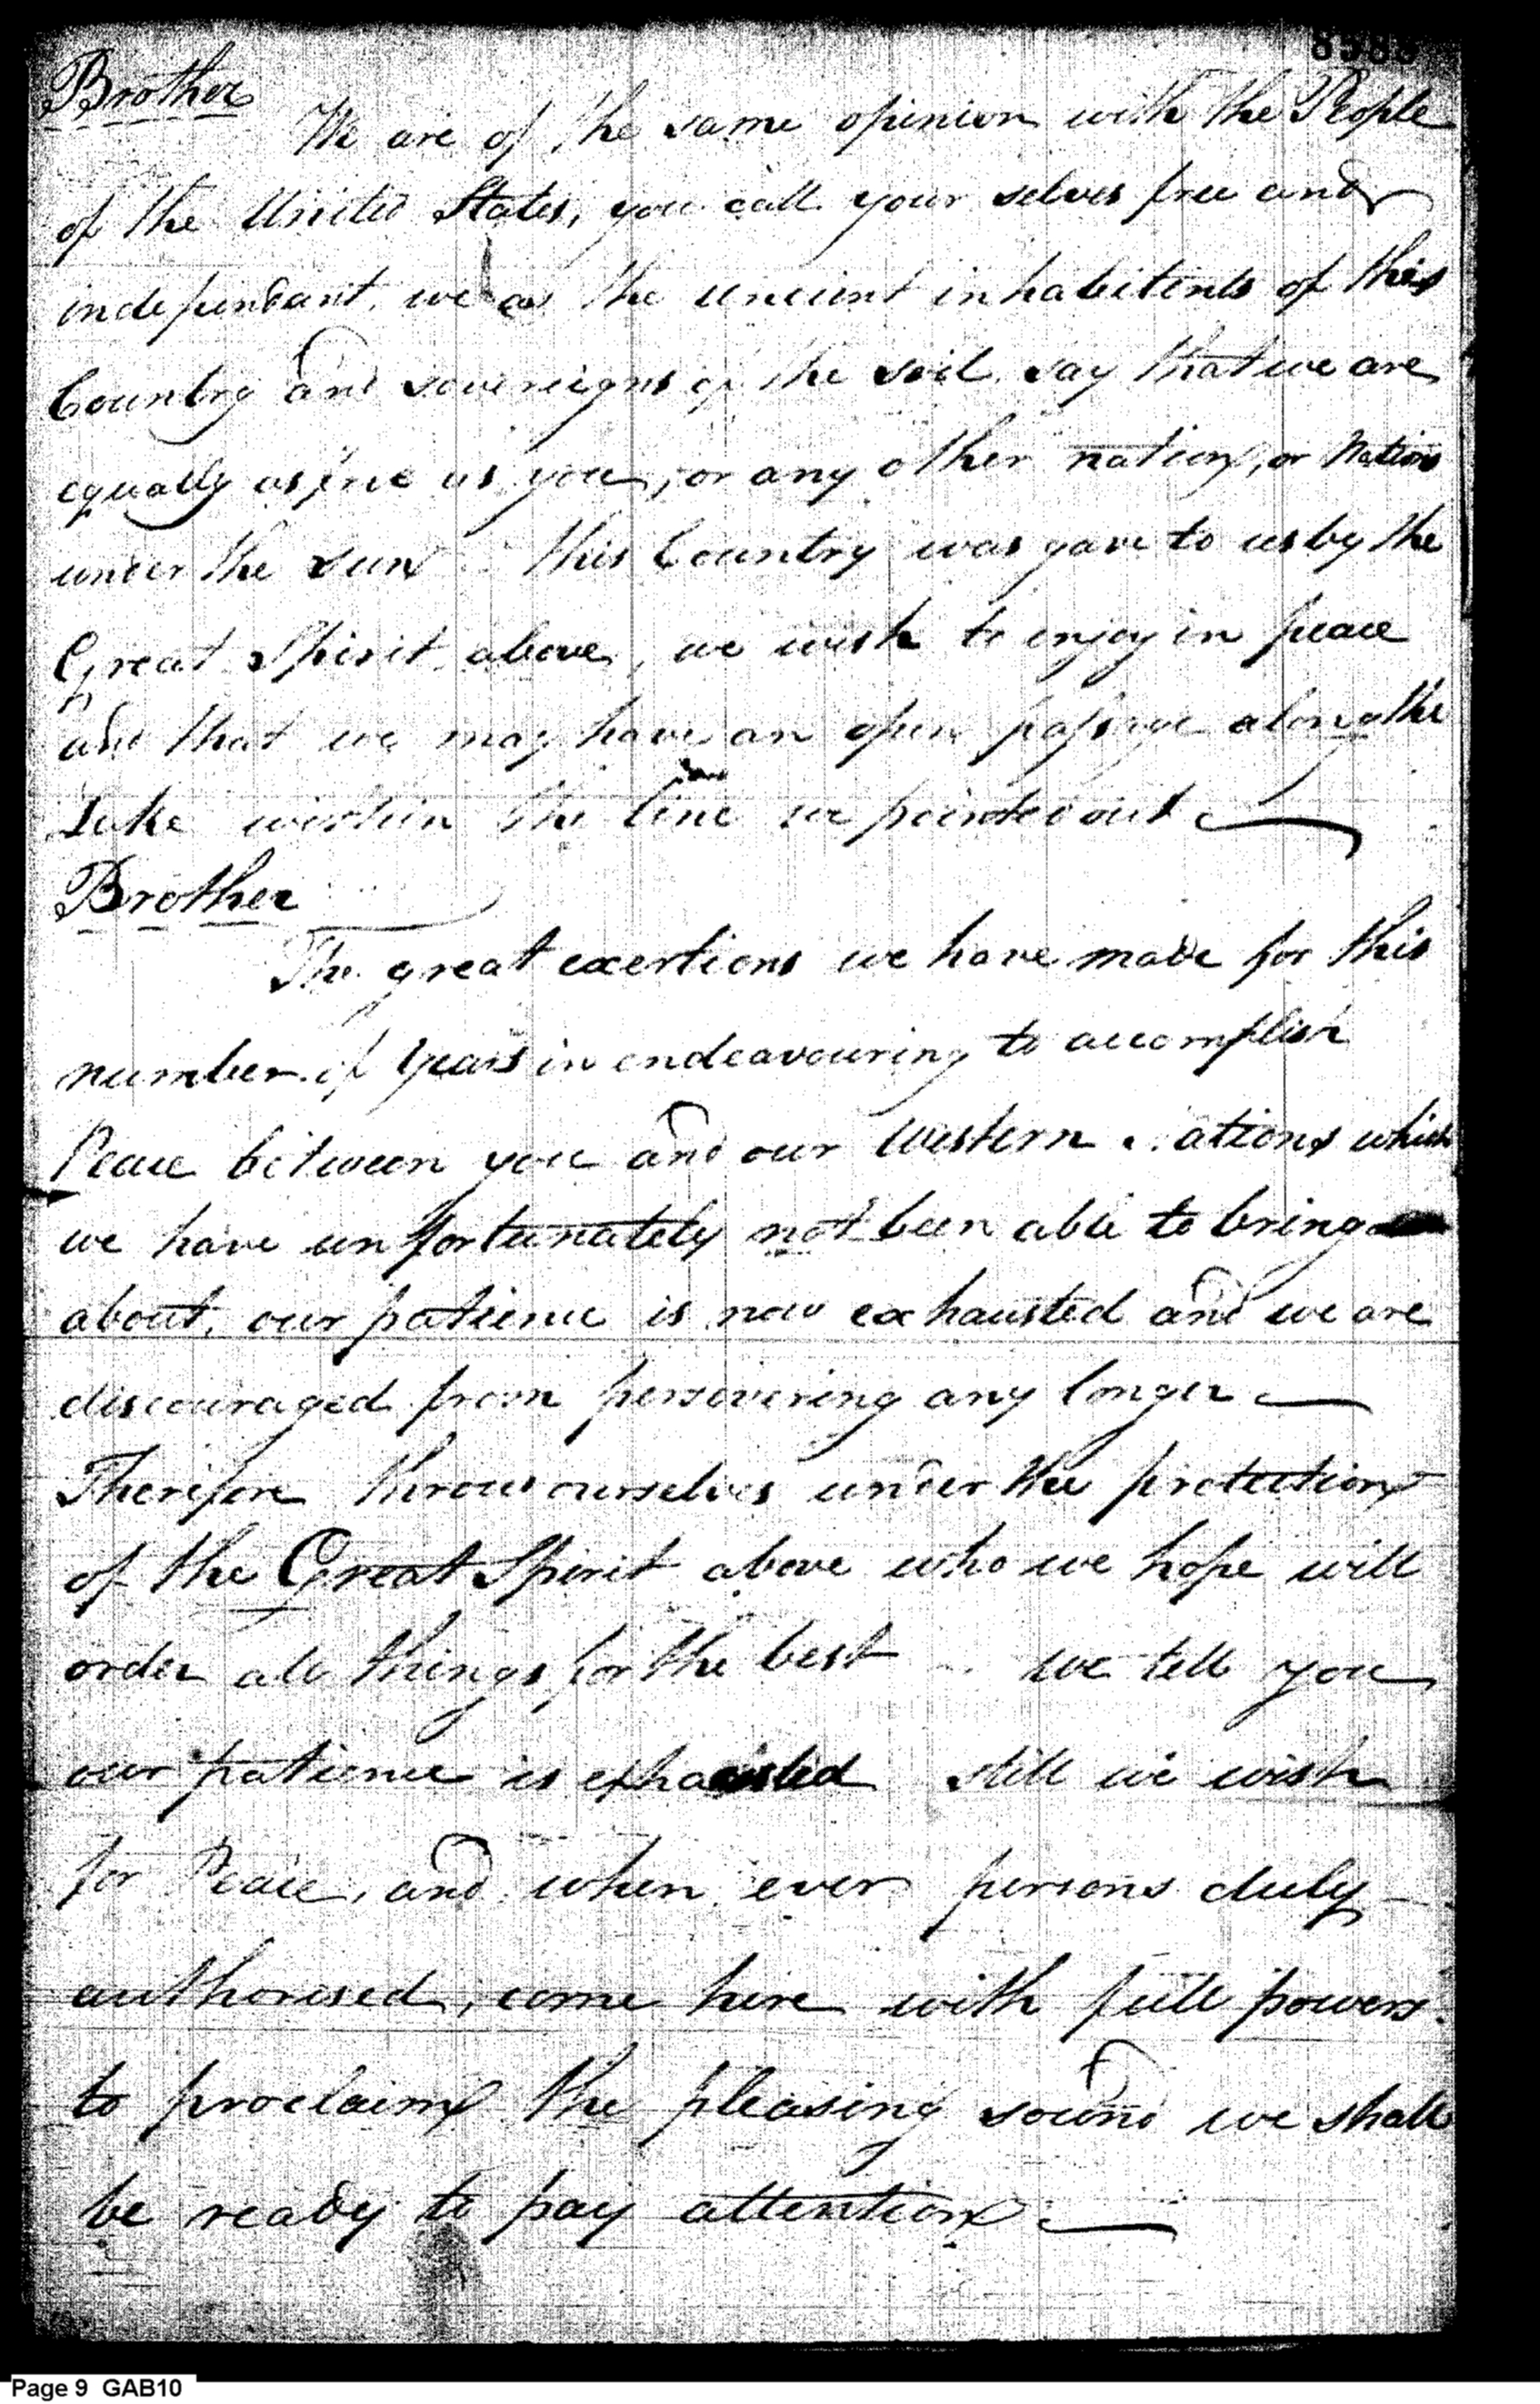 Brother
We are of the same opinion with the People
of the United States, you call your selves free and
independant, we as the ancient inhabitents of this
Country and sovereigns of the soil say that we are
equally as free as you, or any other nation, or Nations
under the sun this Country was gave to us by the
Great Spirit above, we wish to enjoy in peace
and that we may have an open passage along the
Lake within the line we pointed out
Brother
The great exertions we have made for this
number of years in endeavouring to accomplish
Peace between you and our Western ations which
we have unfortunately not been able to bring
about, our patience is now exhausted and we are
discouraged from persevering any longer
Therefore throw ourselves under the protection
of the Great Spirit above who we hope will
order all things for the best we tell you
our patience is exhausted still we wish
for Peace, and when ever persons duly
authorised, come here with full powers
to proclaim the pleasing sound we shall
be ready to pay attention
Page 9 GAB10